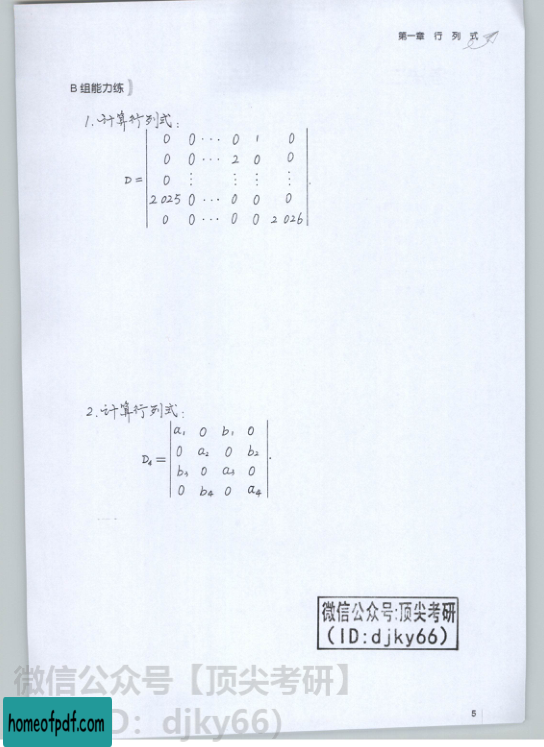 第一章 行 列 式
B组能力练
1.计算行列式:
0 0 ··· 0 1 0
0 0 ··· 2 0 0
D= 0 ⋮ ⋮ ⋮ ⋮
2025 0 ··· 0 0 0
0 0 ··· 0 0 2026
2.计算行列式:
a₁ 0 b₁ 0
0 a₂ 0 b₂
D₄=
b₃ 0 a₃ 0
0 b₄ 0 a₄
微信公众号:顶尖考研
(ID:djky66)
微信公众号【顶尖考研】
D: djky66)
homeofpdf.com
5